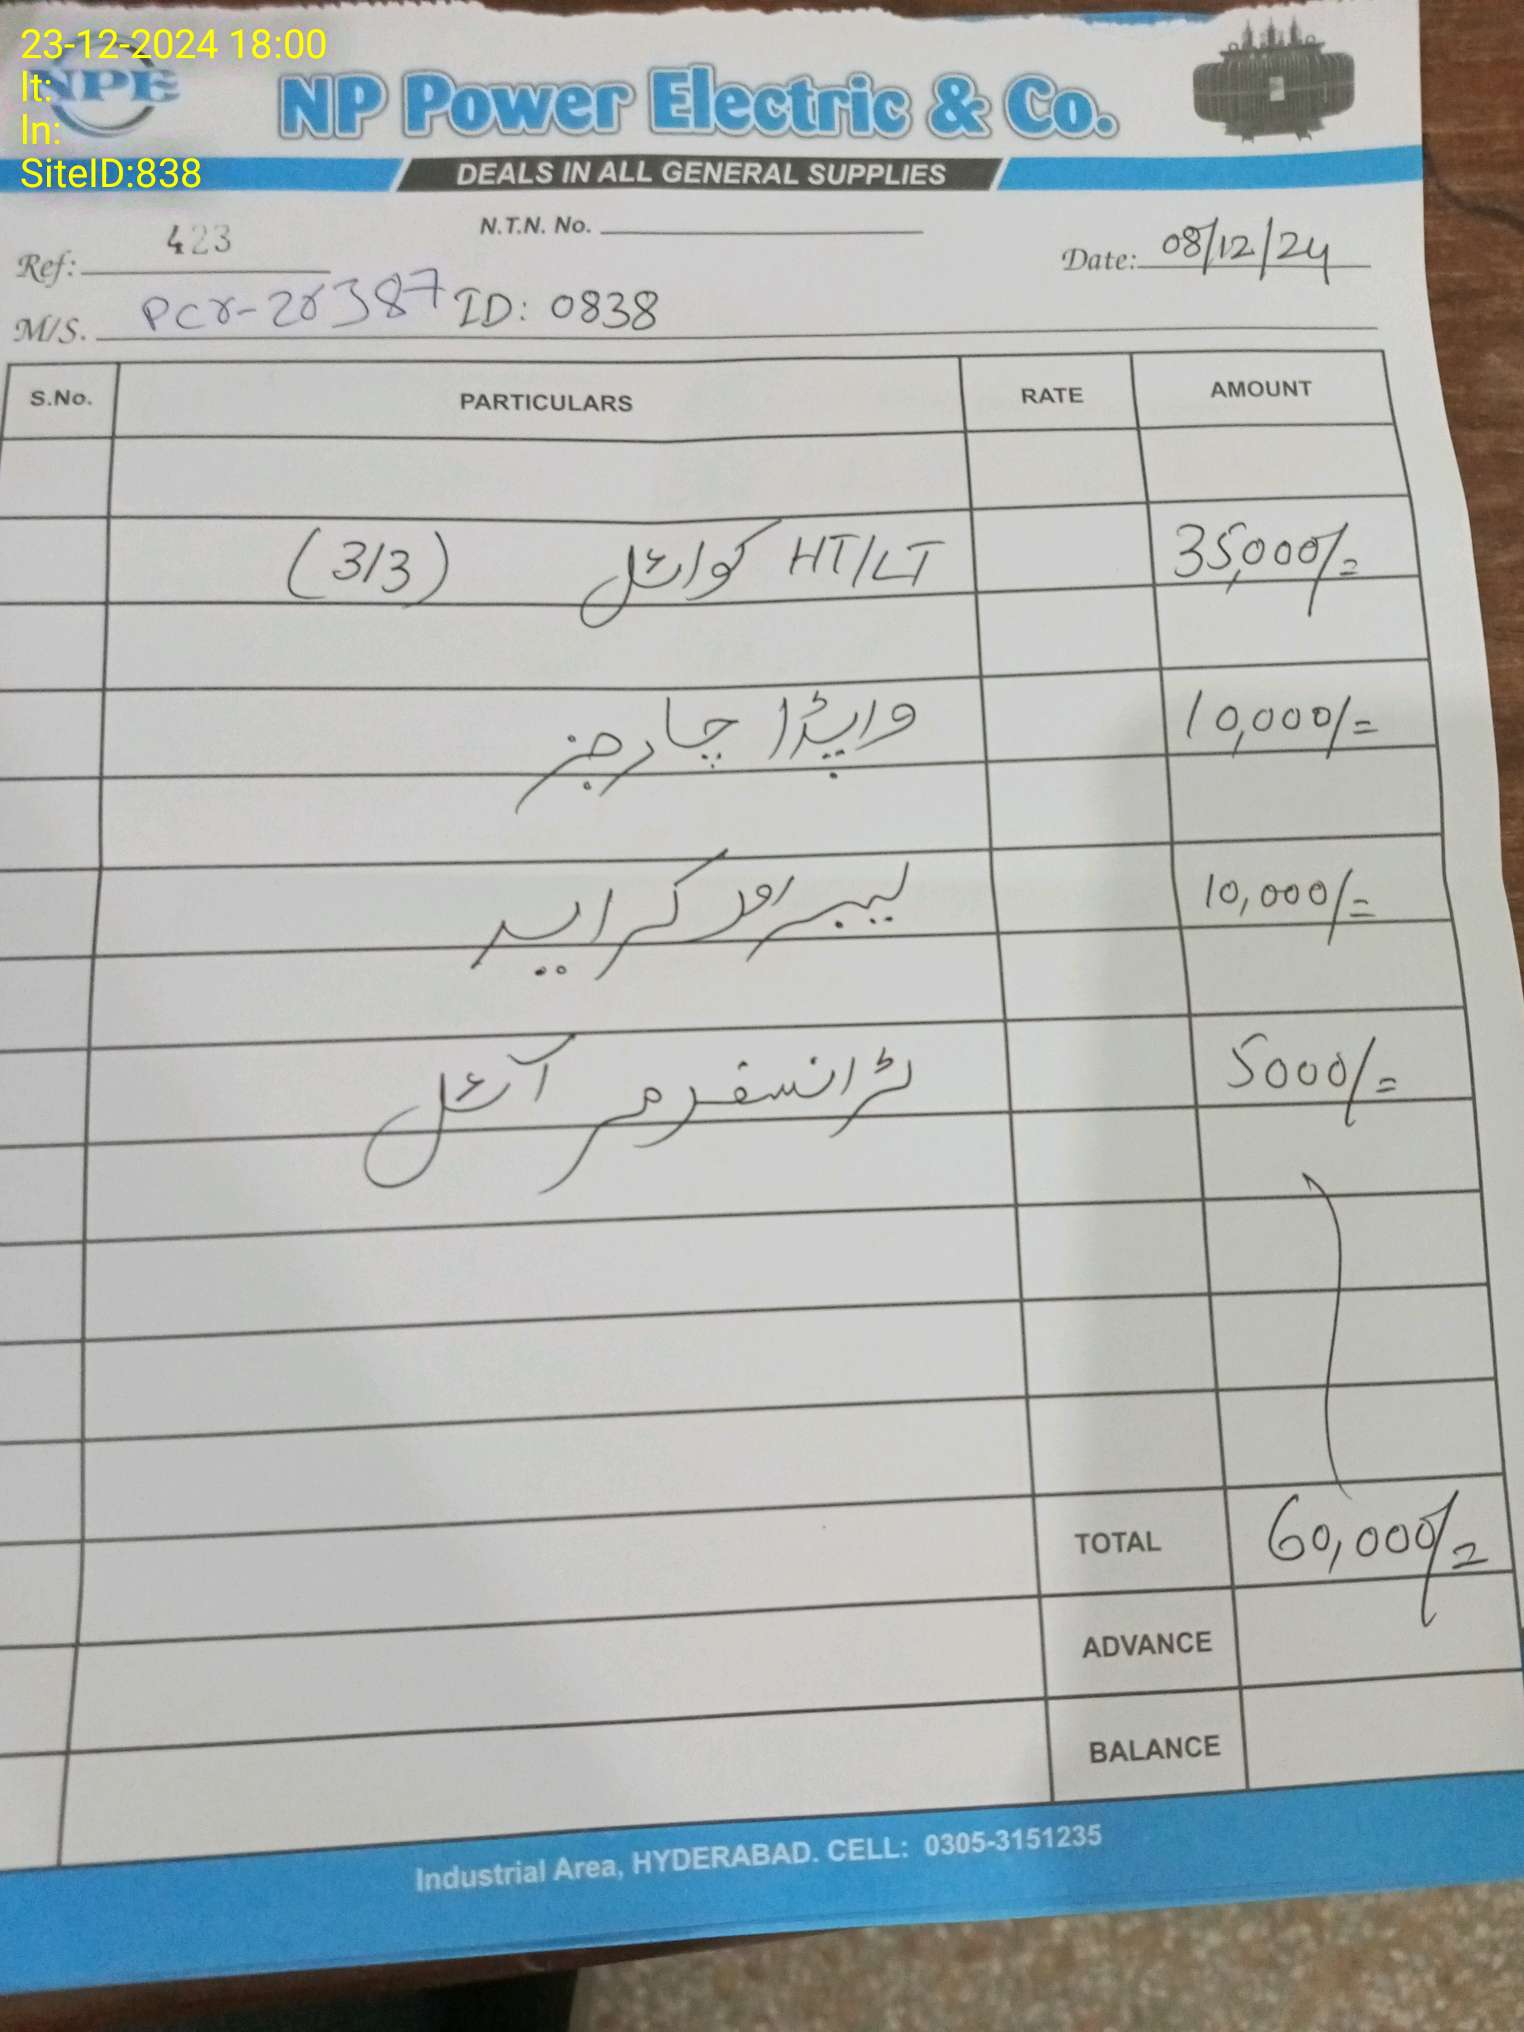 23-12-2024 18:00
lt:
ln:
SiteID:838
NPE
NP Power Electric & Co.
DEALS IN ALL GENERAL SUPPLIES
Ref: 423
N.T.N. No.
Date: 08/12/24
M/S. PCR-28387 ID: 0838
S.No. PARTICULARS RATE AMOUNT
HT/LT کوائل (3/3) 35,000/=
واپڈا چارجز 10,000/=
لیبر اور کرایہ 10,000/=
ٹرانسفرمر آئل 5000/=
TOTAL 60,000/=
ADVANCE
BALANCE
Industrial Area, HYDERABAD. CELL: 0305-3151235